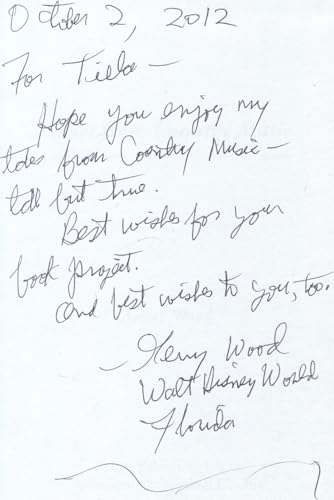 October 2, 2012
For Tiela —
Hope you enjoy my
tales from Country Music —
tall but true.
Best wishes for your
book project.
And best wishes to you, too.
— Gerry Wood
Walt Disney World
Florida